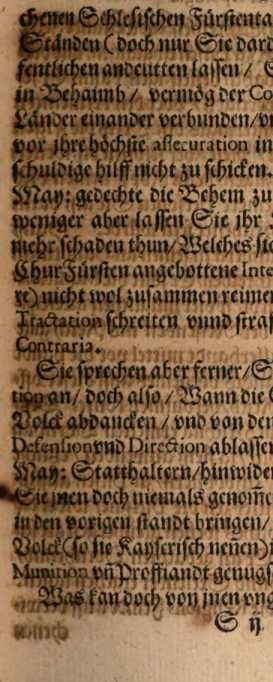 chenen Schlesischen Fürstenta
Ständen (doch nur Sie dard
fentlichen andeutten lassen /
in Behaimb / vermög der Co
Länder einander verbunden/vn
vor jhre höchste assecuration in
schuldige hilff nicht zu schicken.
May: gedechte die Behem zu
weniger aber lassen Sie jhr
mehr schaden thun/Welches sic
ChurFürsten angebottene Inte
re) nicht wol zusammen reimen
Tractation schreiten vnnd straf
Contraria.
Sie sprechen aber ferner/S
tion an/ doch also / Wann die
Volck abdancken / vnd von den
Defension vnd Direction ablassen
May: Statthaltern/hinwider
Sie jnen doch niemals genom̃e
in den vorigen standt bringen/
Volck(so sie Kayserisch neñen)
Munition vñ Proffiandt genugs
Was kan doch von jnen vng
S ij